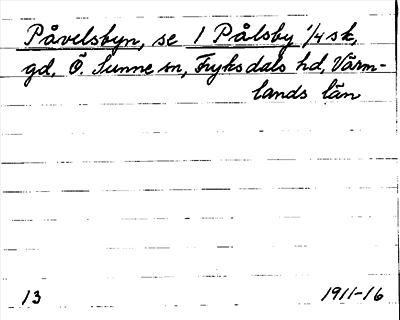 Påvelsbyn, se 1 Pålsby 1/4 sk,
gd, Ö. Sunne sn, Fryksdals hd, Värm-
lands län
13 1911-16